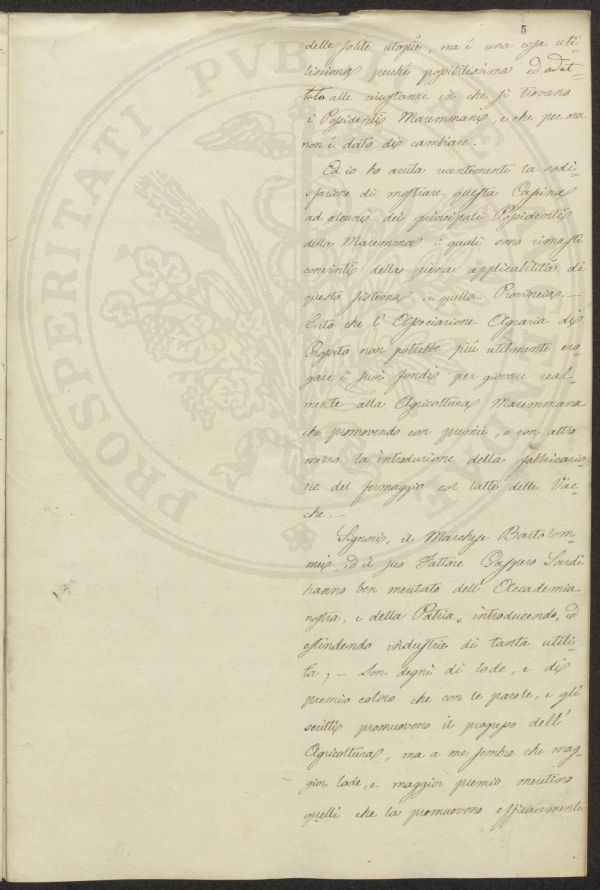 5
delle solite utopie, ma è una cosa uti-
lissima perché possibilissima ed adat-
tata alle circostanze in che si trovano
i Possidenti Maremmani, e che per ora
non è dato di cambiare.
Ed io ho avuta recentemente la sodi-
sfazione di mostrare questa Cascina
ad alcuni dei principali Possidenti
della Maremma i quali sono rimasti
convinti della piena applicabilità di
questo sistema a quella Provincia. —
Certo che l' Associazione Agraria di
Grosseto non potrebbe più utilmente ero-
gare i suoi fondi per giovare real-
mente alla Agricoltura Maremmana
che promovendo con premii, o con altro
mezzo la introduzione della fabbricazio-
ne del formaggio col latte delle Vac-
che. —
Signori, il Marchese Bartolom-
mei, ed il suo Fattore Gaspero Sardi
hanno ben meritato dell' Accademia
nostra, e della Patria, introducendo, ed
estendendo industrie di tanta utili-
tà; — Son degni di lode, e di
premio coloro che con le parole, e gli
scritti promuovono il progresso dell'
Agricoltura, ma a me sembra che mag-
gior lode, e maggior premio meritino
quelli che la promuovono efficacemente
PROSPERITATI PUBLICAE